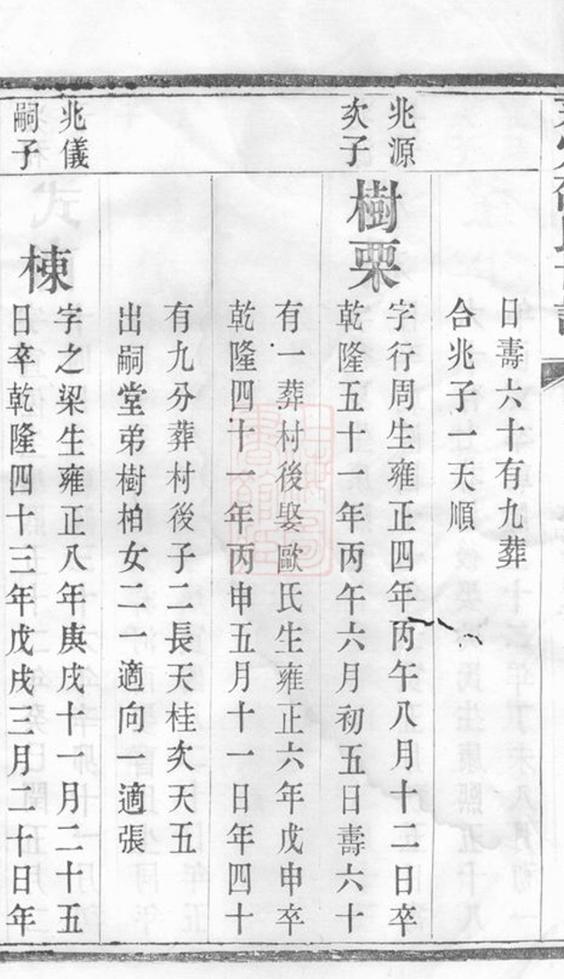 日壽六十有九葬
合兆子一天順
兆源
次子
樹栗
字行周生雍正四年丙午八月十二日卒
乾隆五十一年丙午六月初五日壽六十
有一葬村後娶歐氏生雍正六年戊申卒
乾隆四十一年丙申五月十一日年四十
有九分葬村後子二長天桂次天五
出嗣堂弟樹柏女二一適向一適張
兆儀
嗣子
棟
字之梁生雍正八年庚戌十一月二十五
日卒乾隆四十三年戊戌三月二十日年